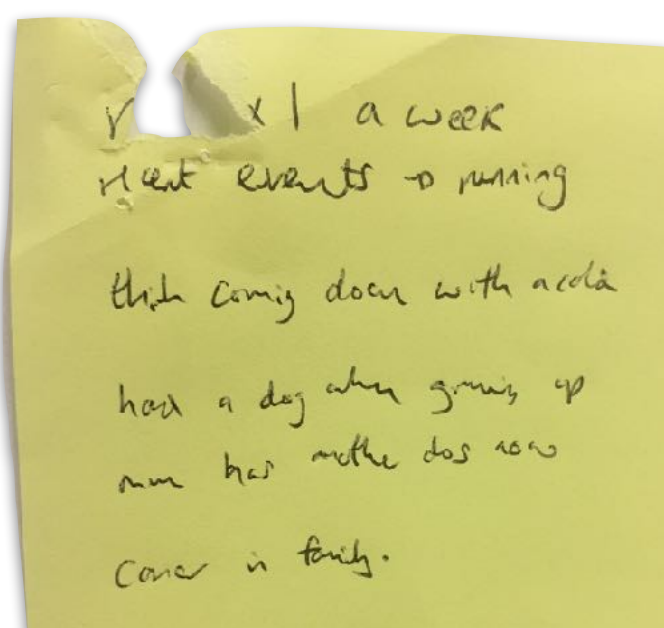 x 1 a week
recent events → running
think coming down with a cold
had a dog when growing up
mum has another dog now
Cancer in family.